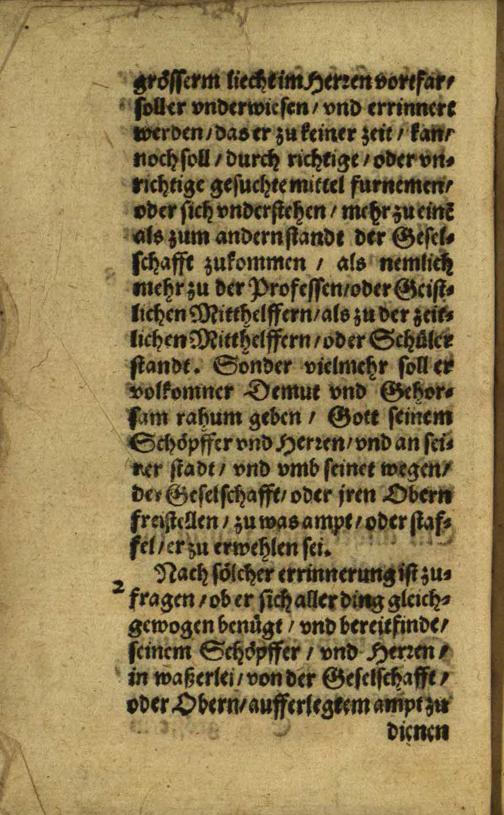 grösserm liecht im Herren vortfar/
soll er vnderwiesen/ vnd errinnert
werden/ das er zu keiner zeit/ kan/
noch soll/ durch richtige/ oder vn⸗
richtige gesuchte mittel furnemen/
oder sich vnderstehen/ mehr zu einẽ
als zum andern standt der Gesel⸗
schafft zukommen / als nemlich
mehr zu der Professen/ oder Geist⸗
lichen Mitthelffern/ als zu der zeit⸗
lichen Mitthelffern/ oder Schüler
standt. Sonder vielmehr soll er
volkomner Demut vnd Gehor⸗
sam rahum geben / Gott seinem
Schöpffer vnd Herren/ vnd an sei⸗
ner stadt/ vnd vmb seinet wegen/
der Geselschafft/ oder jren Obern
freistellen/ zu was ampt/ oder staf⸗
fel/ er zu erwehlen sei.
Nach sölcher errinnerung ist zu⸗
2 fragen/ ob er sich aller ding gleich⸗
gewogen benügt / vnd bereit finde/
seinem Schöpffer / vnd Herren/
in waßerlei/ von der Geselschafft/
oder Obern/ aufferlegtem ampt zu
dienen